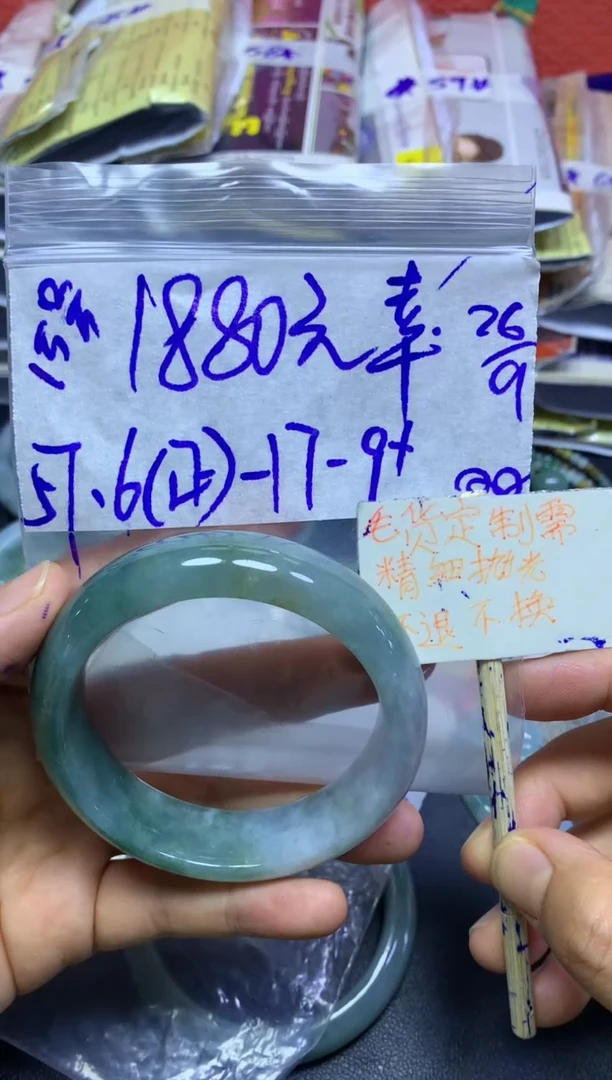 1880元
26/9
57.6(正)-17-9+
毛货定制需
精细抛光
不退不换
57#